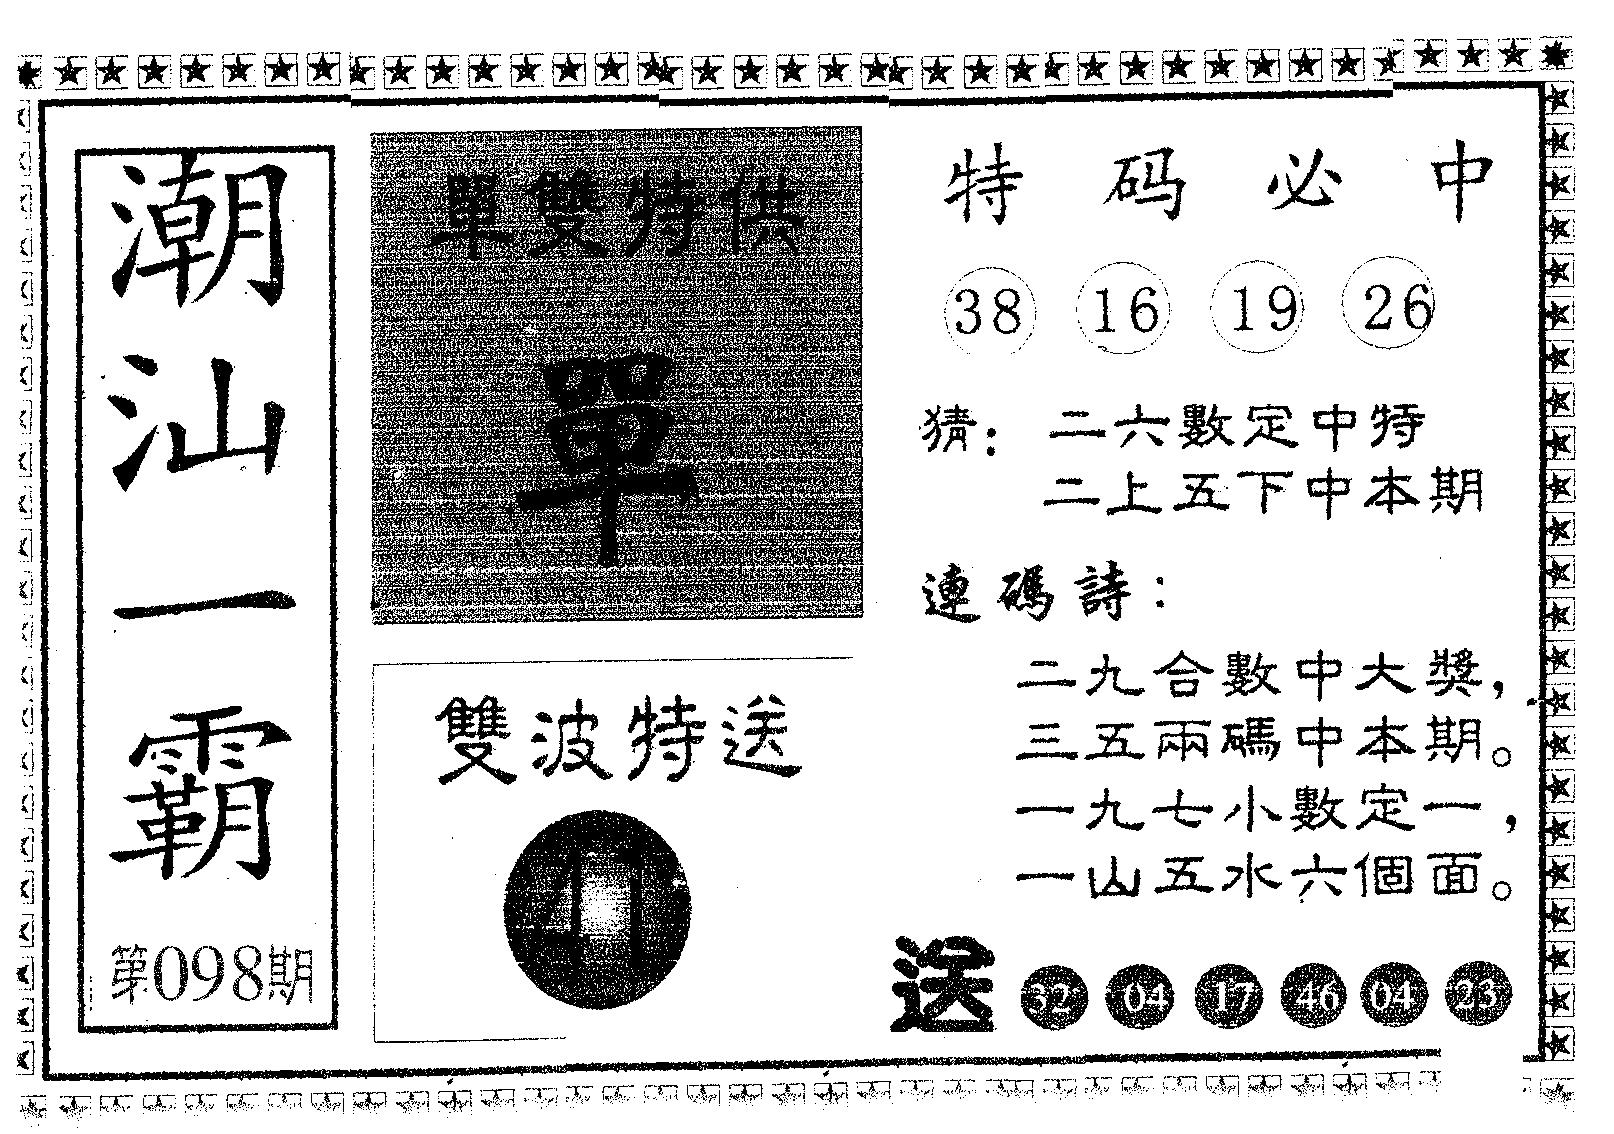 潮汕一霸
第098期
單雙特供
單
雙波特送
41
特码必中
38 16 19 26
猜：二六數定中特
二上五下中本期
連碼詩：
二九合數中大獎，
三五兩碼中本期。
一九七小數定一，
一山五水六個面。
送 32 04 17 46 04 23